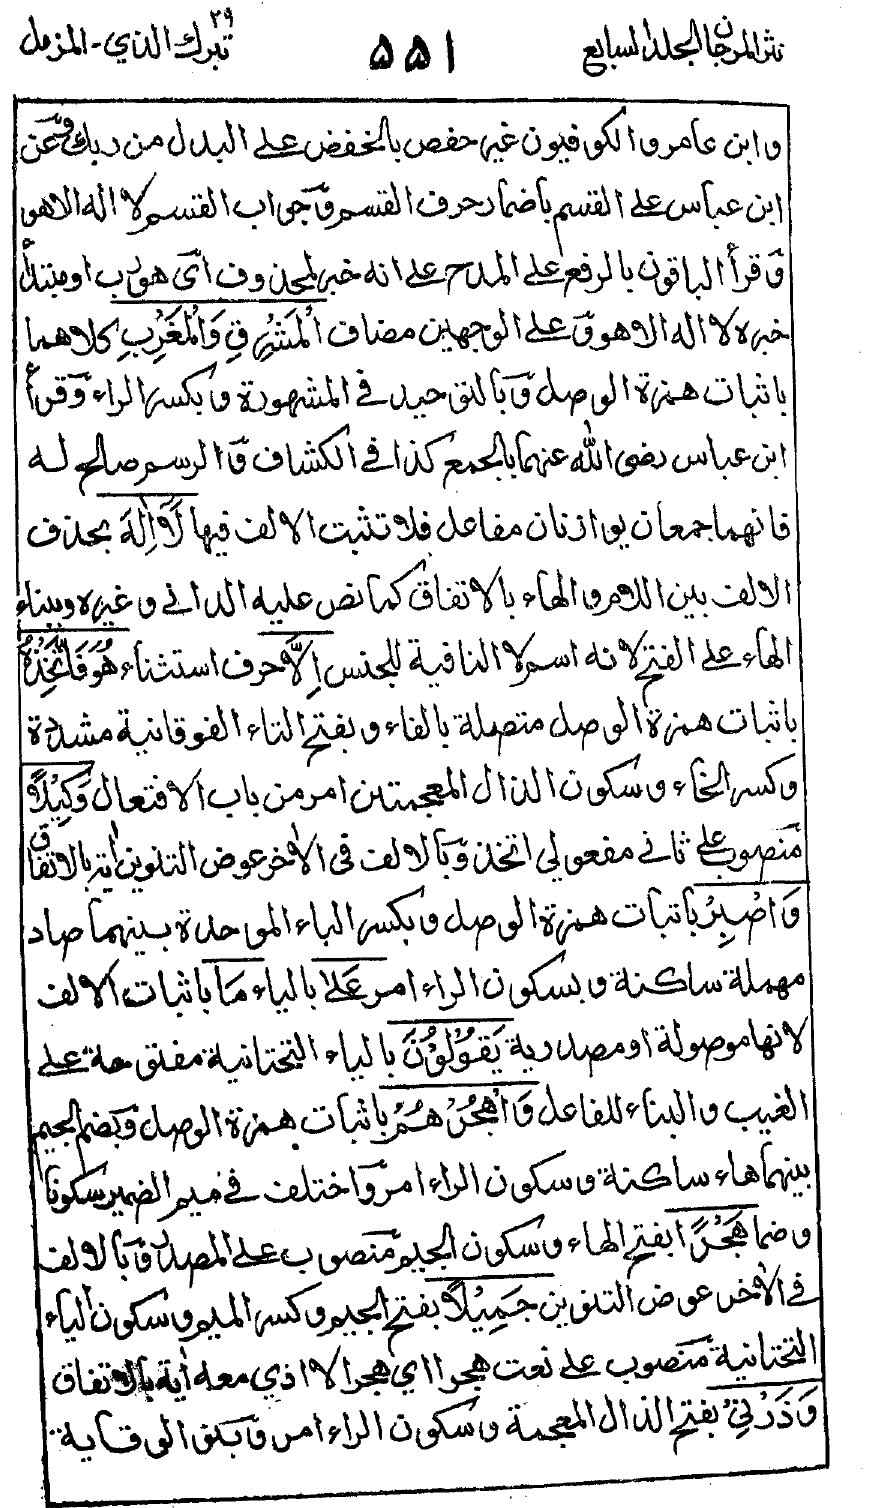 نثر المرجان المجلد السابع ٥٥١ تبرك الذي ٢٩ - المزمل
وابن عامر والكوفيون غير حفص بالخفض على البدل من ربك وعن
ابن عباس على القسم باضمار حرف القسم وجواب القسم لا اله الا هو
وقرأ الباقون بالرفع على المدح على انه خبر لمحذوف اى هو رب او مبتدأ
خبره لا اله الا هو وعلى الوجهين مضاف الْمَشْرِقِ وَالْمَغْرِبِ كلاهما
باثبات همزة الوصل وبالتوحيد في المشهورة وبكسر الراء وقرأ
ابن عباس رضى الله عنهما بالجمع كذا في الكشاف والرسم صالح له
فانهما جمعان يوازنان مفاعل فلا تثبت الالف فيها لَآ اِلٰهَ بحذف
الالف بين اللام والهاء بالاتفاق كما نص عليه الداني وغيره وببناء
الهاء على الفتح لانه اسم لا النافية للجنس اِلَّا حرف استثناء هُوَ فَاتَّخِذْهُ
باثبات همزة الوصل متصلة بالفاء وبفتح التاء الفوقانية مشددة
وكسر الخاء وسكون الذال المعجمتين امر من باب الافتعال وَكِيْلًا
منصوب على ثاني مفعولي اتخذ وبالالف في الآخر عوض التنوين اية بالاتفاق
وَاصْبِرْ باثبات همزة الوصل وبكسر الباء الموحدة بينهما صاد
مهملة ساكنة وبسكون الراء امر عَلٰى بالياء مَا باثبات الالف
لانها موصولة او مصدرية يَقُوْلُوْنَ بالياء التحتانية مفتوحة على
الغيب والبناء للفاعل وَاهْجُرْهُمْ باثبات همزة الوصل وبضم الجيم
بينهما هاء ساكنة وسكون الراء امر واختلف في ميم الضمير سكونا
وضما هَجْرًا بفتح الهاء وسكون الجيم منصوب على المصدر وبالالف
في الآخر عوض التنوين جَمِيْلًا بفتح الجيم وكسر الميم وسكون الياء
التحتانية منصوب على نعت هجرا اي هجرا لا اذي معه اية بالاتفاق
وَذَرْنِيْ بفتح الذال المعجمة وسكون الراء امر وبنون الوقاية